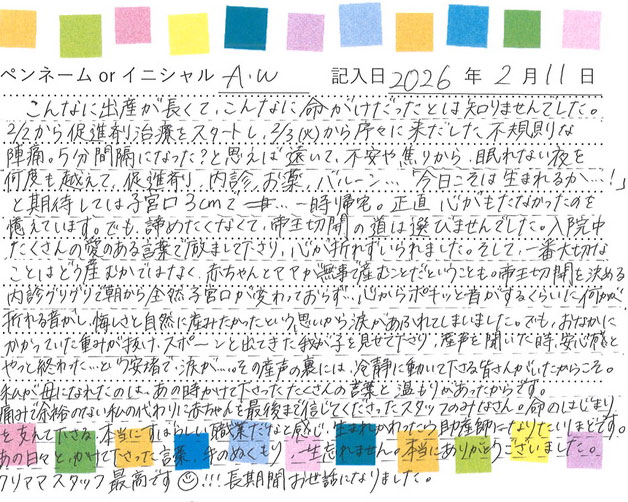 ペンネーム or イニシャル A.W 記入日 2026 年 2 月 11 日
こんなに出産が長くて、こんなに命がけだったとは知りませんでした。
2/2から促進剤治療をスタートし、2/3(火)から序々に来だした不規則な
陣痛。5分間隔になった?と思えば遠いて、不安や焦りから、眠れない夜を
何度も越えて、促進剤、内診、お薬、バルーン…「今日こそは生まれるか…!」
と期待しては子宮口3cmで 一時帰宅。正直 心がもたなかったのを
憶えています。でも、諦めたくなくて、帝王切開の道は選びませんでした。入院中
たくさんの愛のある言葉で励ましてくださり、心が折れずいられました。そして、一番大切な
ことはどう産むかではなく、赤ちゃんとママが無事で産むことだということも。帝王切開を決める
内診グリグリで朝から全然子宮口が変わっておらず…心からポキッと音がするくらいに何かが
折れる音がし、悔しさと自然に産みたかったという思いから涙があふれてしまいました。でも、おなかに
かかっていた重みが抜け、スポーンと出てきた我が子を見せて下さり、産声を聞いた時、安心感と
やっと終わった…という安堵で、涙が…。その産声の裏には、冷静に動いて下さる皆さんがいたからこそ。
私が母になれたのは、あの時かけて下さったたくさんの言葉と温もりがあったからです。
痛みで余裕のない私の代わりに赤ちゃんを最後まで信じてくださったスタッフのみなさん。命のはじまり
を支えて下さる、本当にすばらしい職業だなと感じ、生まれかわったら助産師になりたいほどです。
あの日々と、かけて下さった言葉、手のぬくもり、一生忘れません。本当にありがとうございました。
クリママスタッフ 最高です!!! 長期間お世話になりました。